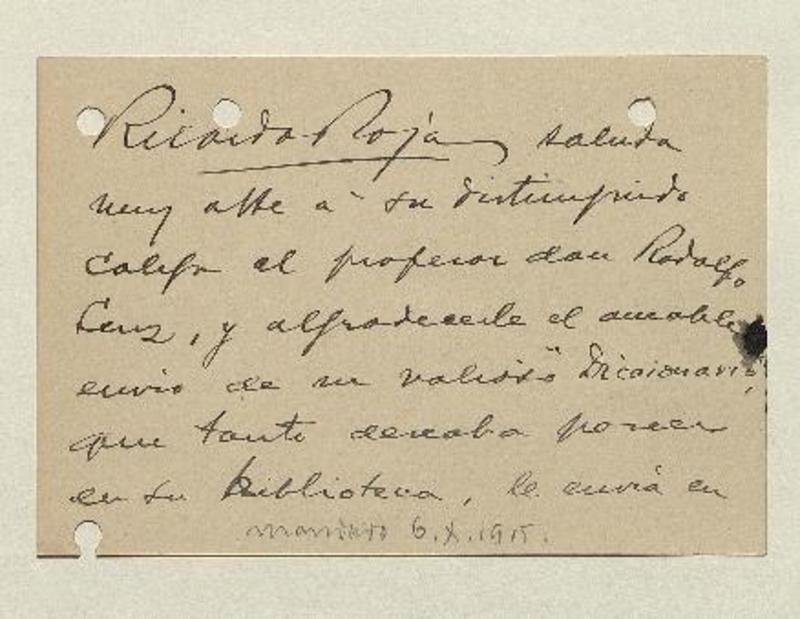 Ricardo Rojas saluda
muy atte a su distinguido
colega el profesor don Rodolfo
Lenz, y al agradecerle el amable
envio de su valioso "Diccionario",
que tanto deseaba poseer
en su biblioteca, le envía en
mandado 6.X.1915.